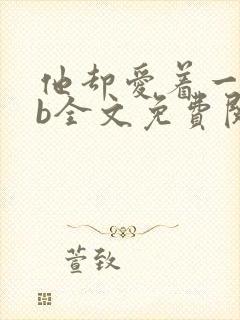 他却爱着一
b全文免费阅
萱致